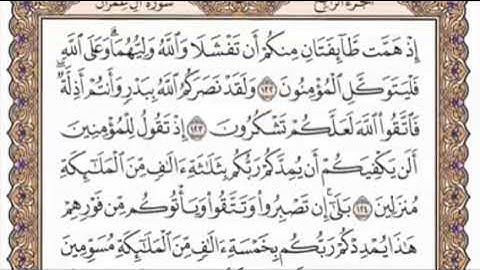 الجزء الرابع سورة آل عمران
إِذْ هَمَّت طَّآئِفَتَانِ مِنكُمْ أَن تَفْشَلَا وَٱللَّهُ وَلِيُّهُمَا ۗ وَعَلَى ٱللَّهِ
فَلْيَتَوَكَّلِ ٱلْمُؤْمِنُونَ ١٢٢ وَلَقَدْ نَصَرَكُمُ ٱللَّهُ بِبَدْرٍ وَأَنتُمْ أَذِلَّةٌ ۖ
فَٱتَّقُوا۟ ٱللَّهَ لَعَلَّكُمْ تَشْكُرُونَ ١٢٣ إِذْ تَقُولُ لِلْمُؤْمِنِينَ
أَلَن يَكْفِيَكُمْ أَن يُمِدَّكُمْ رَبُّكُم بِثَلَٰثَةِ ءَالَٰفٍ مِّنَ ٱلْمَلَٰٓئِكَةِ
مُنزَلِينَ ١٢٤ بَلَىٰٓ ۚ إِن تَصْبِرُوا۟ وَتَتَّقُوا۟ وَيَأْتُوكُم مِّن فَوْرِهِمْ
هَٰذَا يُمْدِدْكُمْ رَبُّكُم بِخَمْسَةِ ءَالَٰفٍ مِّنَ ٱلْمَلَٰٓئِكَةِ مُسَوِّمِينَ